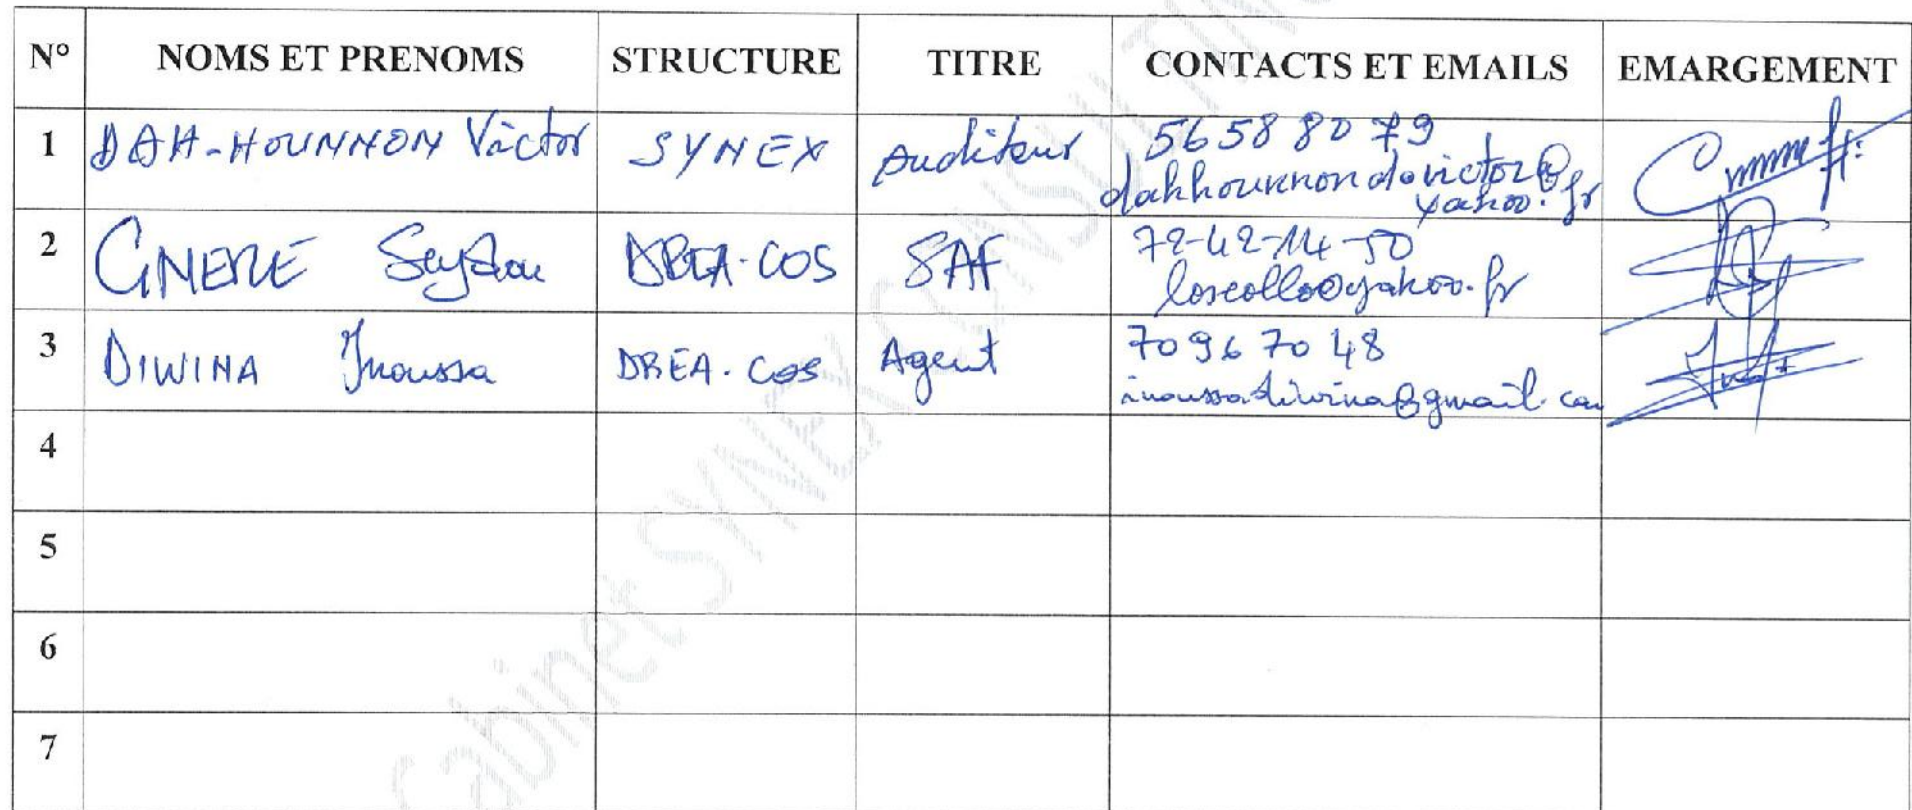 N° NOMS ET PRENOMS STRUCTURE TITRE CONTACTS ET EMAILS EMARGEMENT
1 DAH-HOUNNON Victor SYNEX Auditeur 56 58 80 79
dahhounnondovictor@
yahoo.fr
2 GNEME Seydou DREA-COS SAF 72-42-14-50
loscollo@yahoo.fr
3 DIWINA Inoussa DREA-COS Agent 70 96 70 48
inoussadiwina@gmail.com
4
5
6
7
Cabinet SYNEX CONSULTING